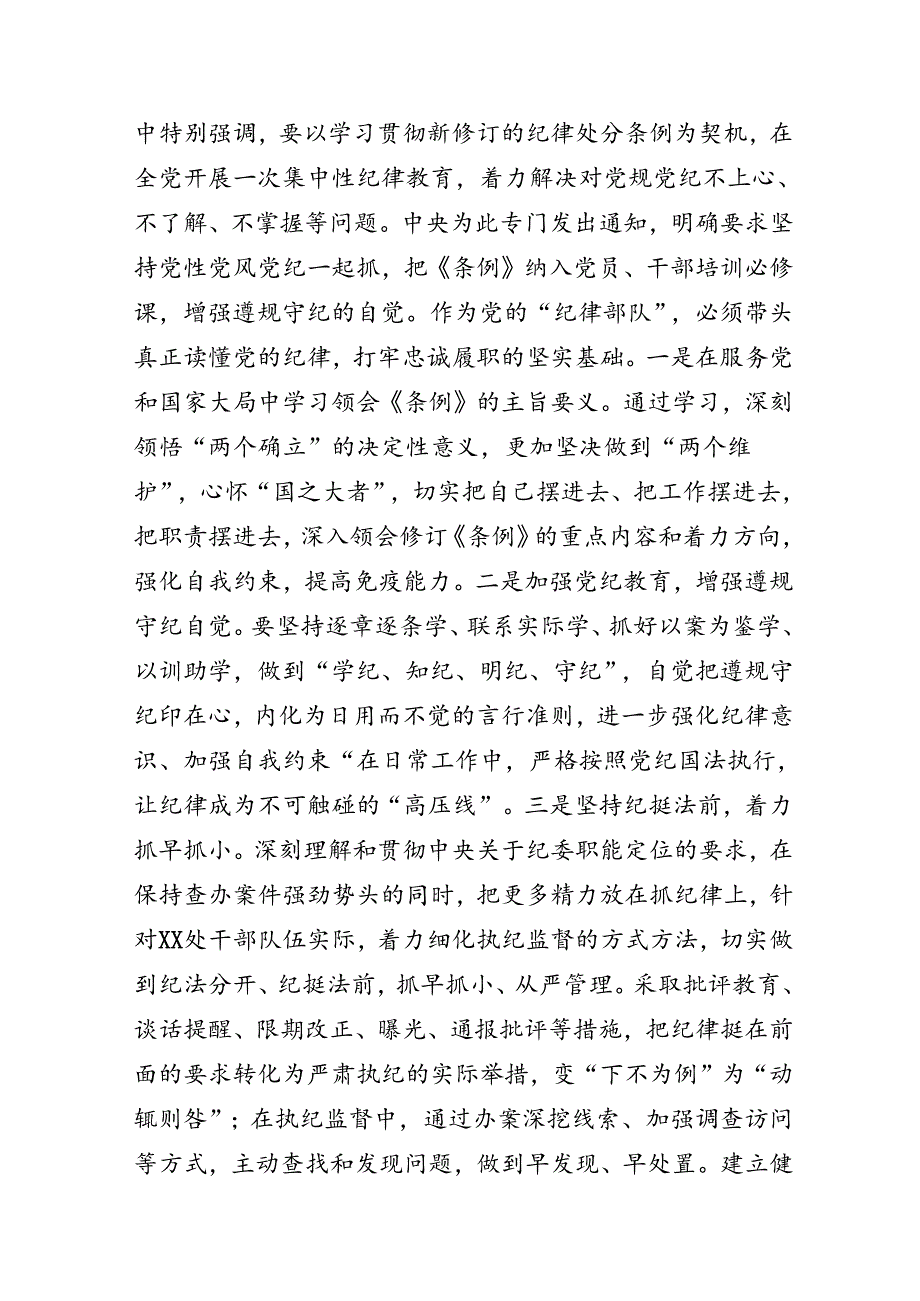 中特别强调，要以学习贯彻新修订的纪律处分条例为契机，在
全党开展一次集中性纪律教育，着力解决对党规党纪不上心、
不了解、不掌握等问题。中央为此专门发出通知，明确要求坚
持党性党风党纪一起抓，把《条例》纳入党员、干部培训必修
课，增强遵规守纪的自觉。作为党的“纪律部队”，必须带头
真正读懂党的纪律，打牢忠诚履职的坚实基础。一是在服务党
和国家大局中学习领会《条例》的主旨要义。通过学习，深刻
领悟“两个确立”的决定性意义，更加坚决做到“两个维
护”，心怀“国之大者”，切实把自己摆进去、把工作摆进去，
把职责摆进去，深入领会修订《条例》的重点内容和着力方向，
强化自我约束，提高免疫能力。二是加强党纪教育，增强遵规
守纪自觉。要坚持逐章逐条学、联系实际学、抓好以案为鉴学、
以训助学，做到“学纪、知纪、明纪、守纪”，自觉把遵规守
纪印在心，内化为日用而不觉的言行准则，进一步强化纪律意
识、加强自我约束“在日常工作中，严格按照党纪国法执行，
让纪律成为不可触碰的“高压线”。三是坚持纪挺法前，着力
抓早抓小。深刻理解和贯彻中央关于纪委职能定位的要求，在
保持查办案件强劲势头的同时，把更多精力放在抓纪律上，针
对XX处干部队伍实际，着力细化执纪监督的方式方法，切实做
到纪法分开、纪挺法前，抓早抓小、从严管理。采取批评教育、
谈话提醒、限期改正、曝光、通报批评等措施，把纪律挺在前
面的要求转化为严肃执纪的实际举措，变“下不为例”为“动
辄则咎”；在执纪监督中，通过办案深挖线索、加强调查访问
等方式，主动查找和发现问题，做到早发现、早处置。建立健